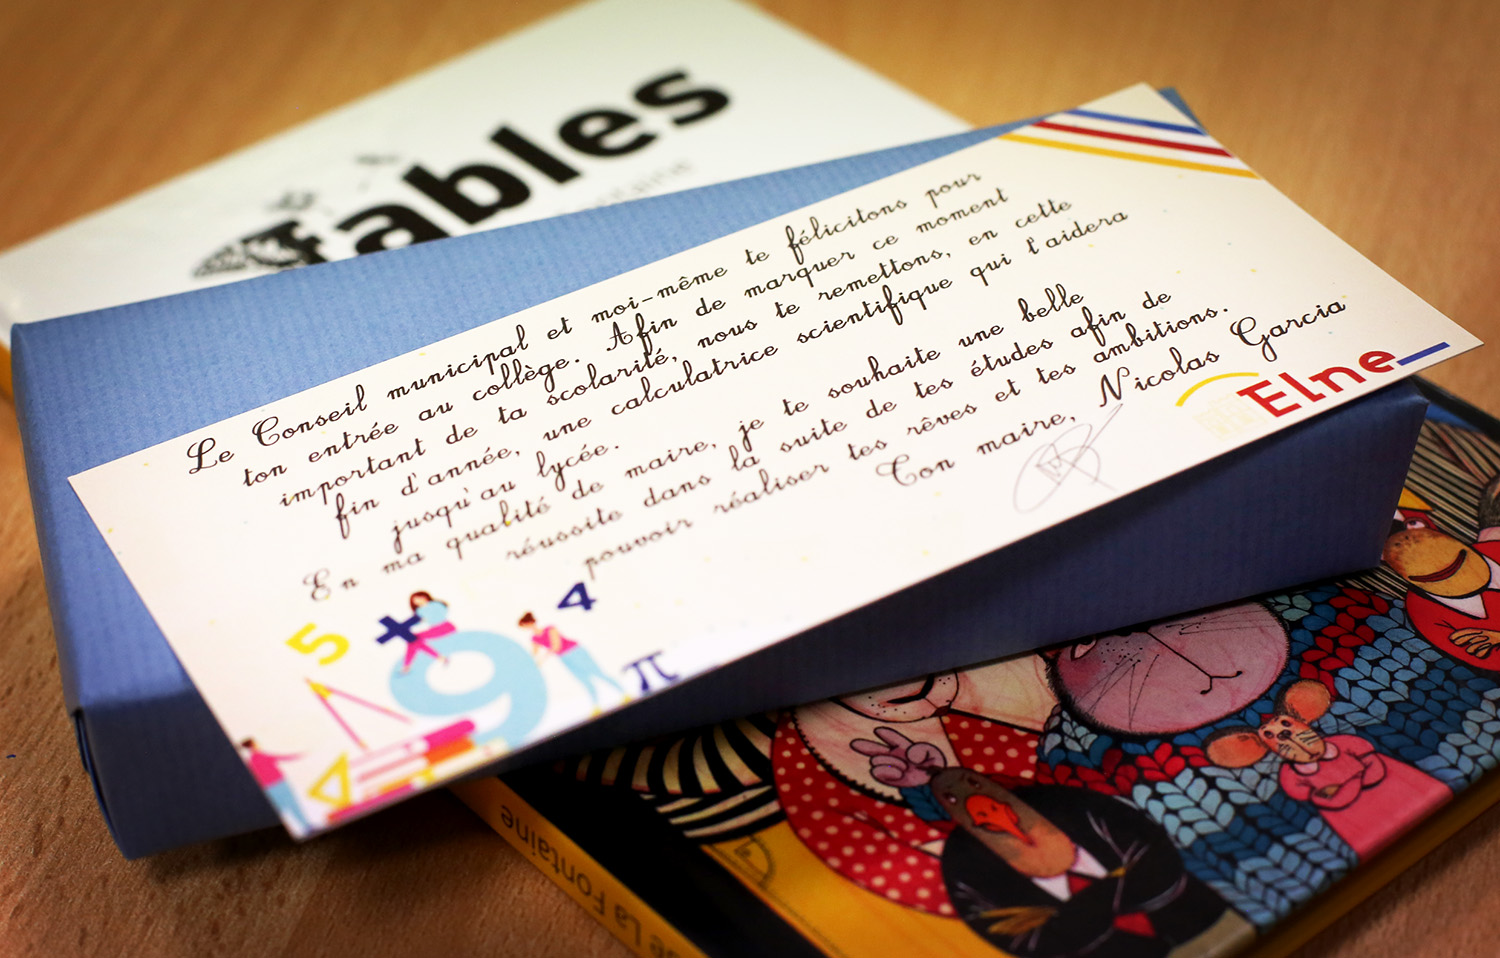 fables
Le Conseil municipal et moi-même te félicitons pour
ton entrée au collège. Afin de marquer ce moment
important de ta scolarité, nous te remettons, en cette
fin d'année, une calculatrice scientifique qui t'aidera
jusqu'au lycée.
En ma qualité de maire, je te souhaite une belle
réussite dans la suite de tes études afin de
pouvoir réaliser tes rêves et tes ambitions.
Ton maire, Nicolas Garcia
Elne
5
+
9
4
π
de La Fontaine